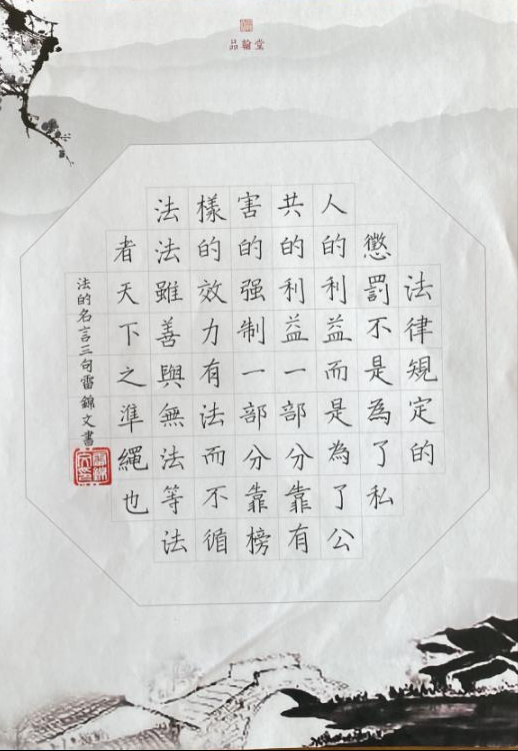 品翰堂
法律規定的
懲罰不是為了私
人的利益而是為了公
共的利益一部分靠有
害的强制一部分靠榜
樣的效力有法而不循
法法雖善與無法等法
者天下之準繩也
法的名言三句雷錦文書